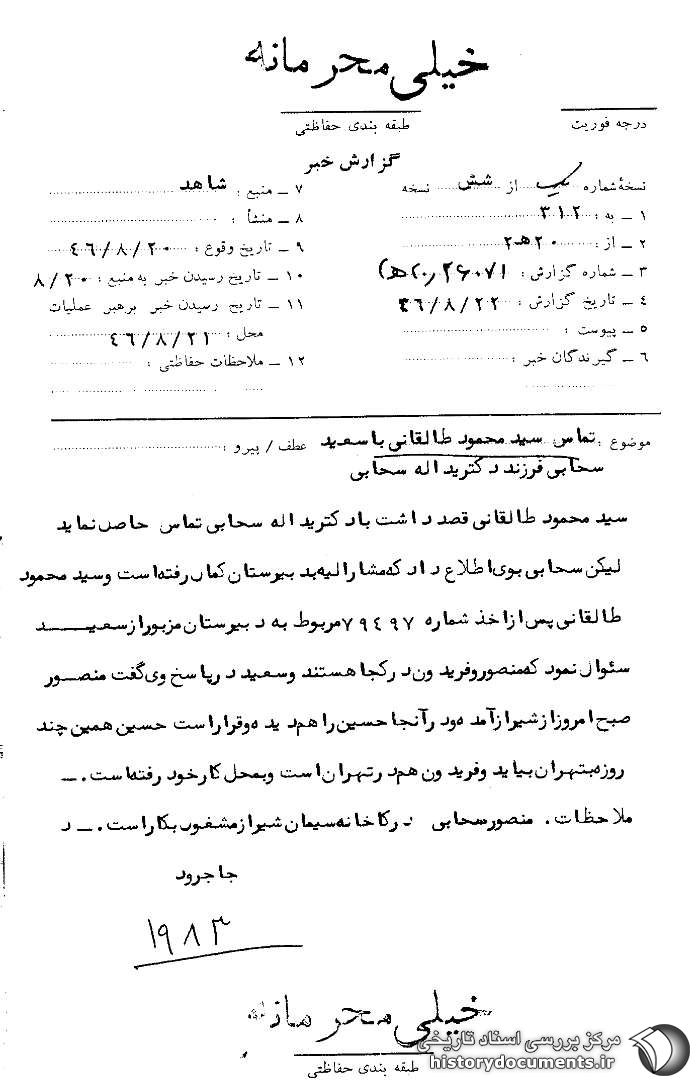 خیلی محرمانه
درجه فوریت
طبقه بندی حفاظتی
گزارش خبر
نسخهٔ شماره یک از شش نسخه
۱ ــ به : ۳۱۲
۲ ــ از : ۲۰ هـ ۲
۳ ــ شماره گزارش :
۴ ــ تاریخ گزارش : ۴۶/۸/۲۲
۵ ــ پیوست :
۶ ــ گیرندگان خبر :
۷ ــ منبع : شاهد
۸ ــ منشأ :
۹ ــ تاریخ وقوع : ۴۶/۸/۲۰
۱۰ ــ تاریخ رسیدن خبر به منبع : ۸/۲۰
۱۱ ــ تاریخ رسیدن خبر برهبر عملیات
محل : ۴۶/۸/۲۱
۱۲ ــ ملاحظات حفاظتی :
موضوع : تماس سید محمود طالقانی با سعید عطف / پیرو :
سحابی فرزند دکتر یداله سحابی
سید محمود طالقانی قصد داشت با دکتر یداله سحابی تماس حاصل نماید
لیکن سحابی بوی اطلاع داد که مشارالیه بدبیرستان کمال رفته است و سید محمود
طالقانی پس از اخذ شماره ۷۹۴۹۷ مربوط به دبیرستان مزبور از سعید
سئوال نمود که منصور و فریدون در کجا هستند و سعید در پاسخ وی گفت منصور
صبح امروز از شیراز آمده و در آنجا حسین را هم دیده و قرار است حسین همین چند
روزه بتهران بیاید و فریدون هم در تهران است و بمحل کار خود رفته است . ــ
ملاحظات . منصور سحابی در کارخانه سیمان شیراز مشغول بکار است . ــ د
جاجرود
۱۹۸۳
خیلی محرمانه
طبقه بندی حفاظتی
مرکز بررسی اسناد تاریخی
historydocuments.ir